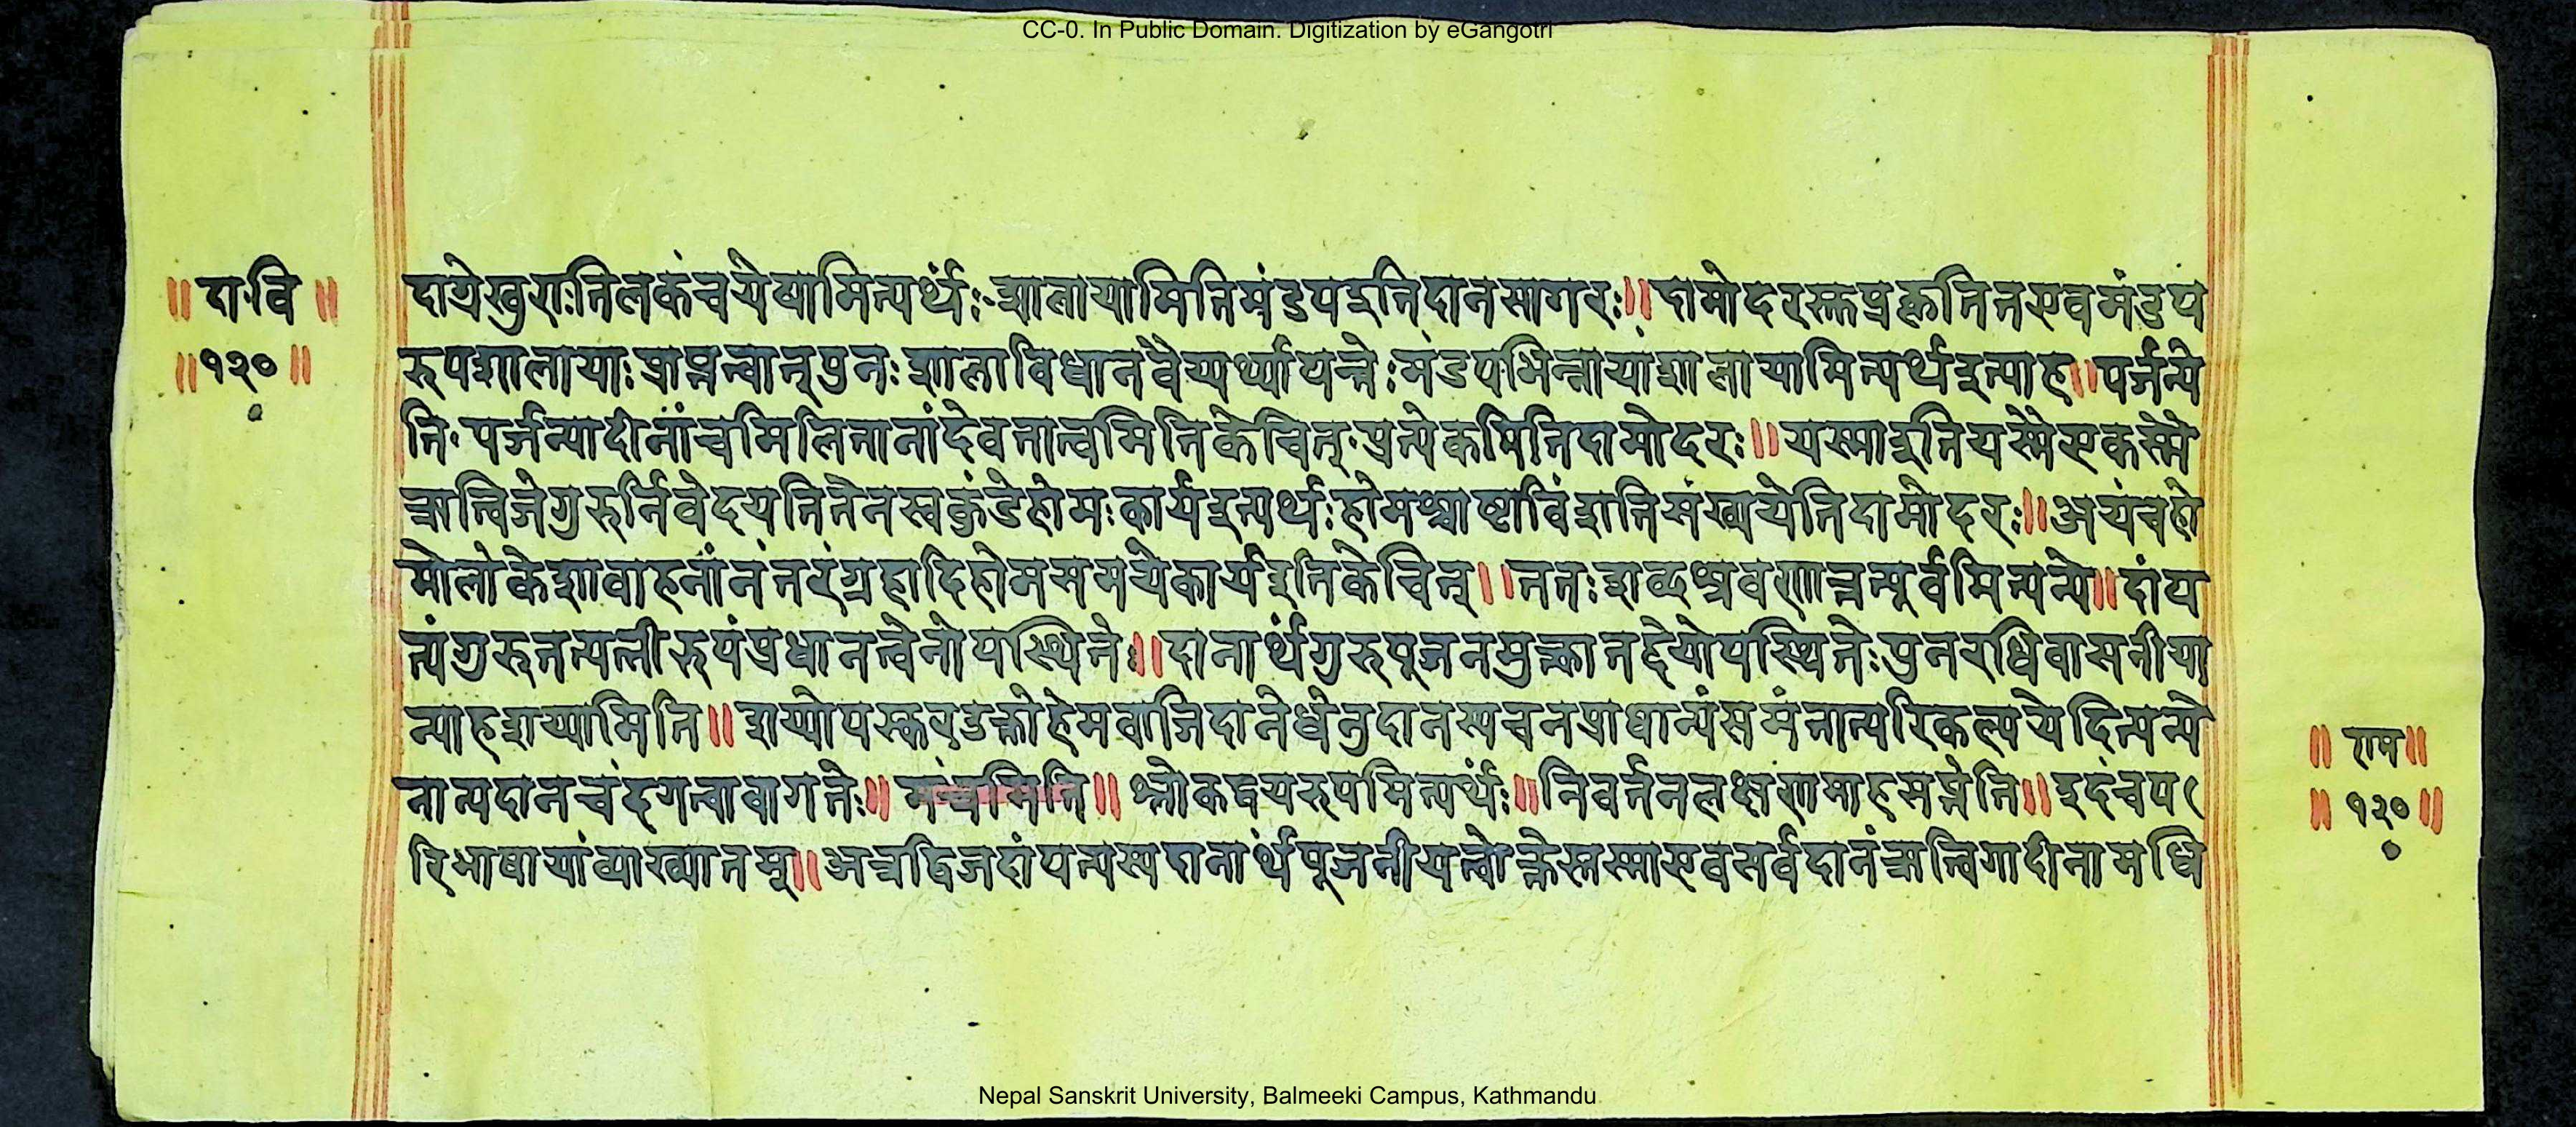 CC-0. In Public Domain. Digitization by eGangotri
॥ दा॰वि ॥
॥१२०॥
दाग्रेखुराःतिलकंचयेद्यामित्यर्थः शालायामितिमंडपइतिदानसागरः॥ दामोदरस्तुप्रकृतितएवमंडप
रुपशालायाः प्राप्तत्वात्पुनः शालाविधानंवैय्यर्थ्यापत्तेः मंडपभिन्नायांशालायामित्यर्थइत्याह॥ पर्जन्ये
ति॰ पर्जन्यादीनांचमिलितानांदेवतात्वमितिकेचित्॰प्रत्येकमितिदामोदरः॥ यस्माइतियस्मैएकस्मै
ऋत्विजेगुरुर्निवेदयतितेनस्वकुंडेहोमःकार्यइत्यर्थः होमश्चाष्टाविंशतिसंख्ययेतिदामोदरः॥ अयंचहो
मोलोकेशावाहनांनंतरंग्रहादिहोमसमयेकार्यइतिकेचित्॥ ततःशब्दश्रवणात्तत्पूर्वमित्यन्ये॥ दांप
त्यंगुरुतत्पत्नीरुपंप्रधानत्वेनोपस्थितेः॥ दानार्थंगुरुपूजनमुक्त्कातद्देयोपस्थितेःपुनरधिवासनीया
त्याहशय्यामिति॥ शय्योपस्करयुडक्तोहेमवाजिदानेधेनुदानस्यचनप्राधान्यंसमंत्रात्परिकल्पयेदित्यन्ये
नान्यदानचंद्गत्वावागतेः॥ मंचमिति॥ श्लोकद्वयरुपमित्यर्थः॥ निवर्तनलक्षणमाहसप्तेति॥ इदंचप
रिभाषायांव्याख्यातम्॥ अत्रद्विजदांपत्यस्यदानार्थंपूजनीयत्वोक्तेस्तस्माएवसर्वदानंऋत्विगादीनामधि
॥ राम॥
॥ १२०॥
Nepal Sanskrit University, Balmeeki Campus, Kathmandu